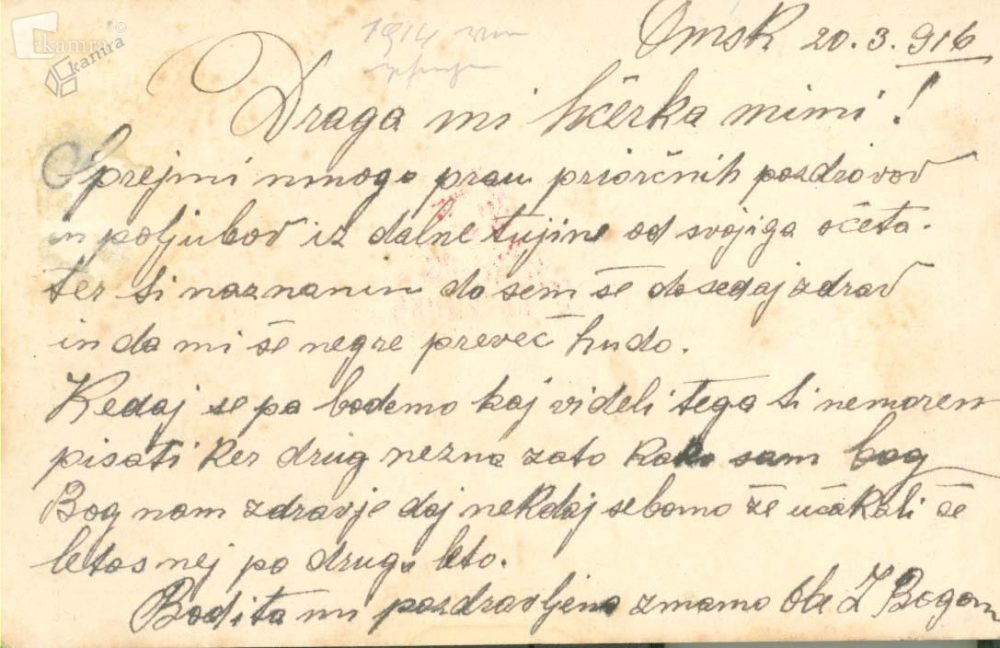 kamra
kamra
1914
Omsk 20.3.916
Draga mi hčerka mimi!
Sprejmi nmogo prau priorčnih pozdrovov
in poljubov iz dalne tujine od svojiga očeta.
ter ti naznanim do sem še do sedaj zdrav
in da mi še negre preveč hudo.
Kedaj se pa bodemo kaj videli tega ti nemorem
pisati ker drug nezna zato kako sam bog
Bog nam zdravje daj nekdaj sebomo že učakali če
letos nej po drugo leto.
Bodita mi pozdravljena z mamo obe Z Bogom